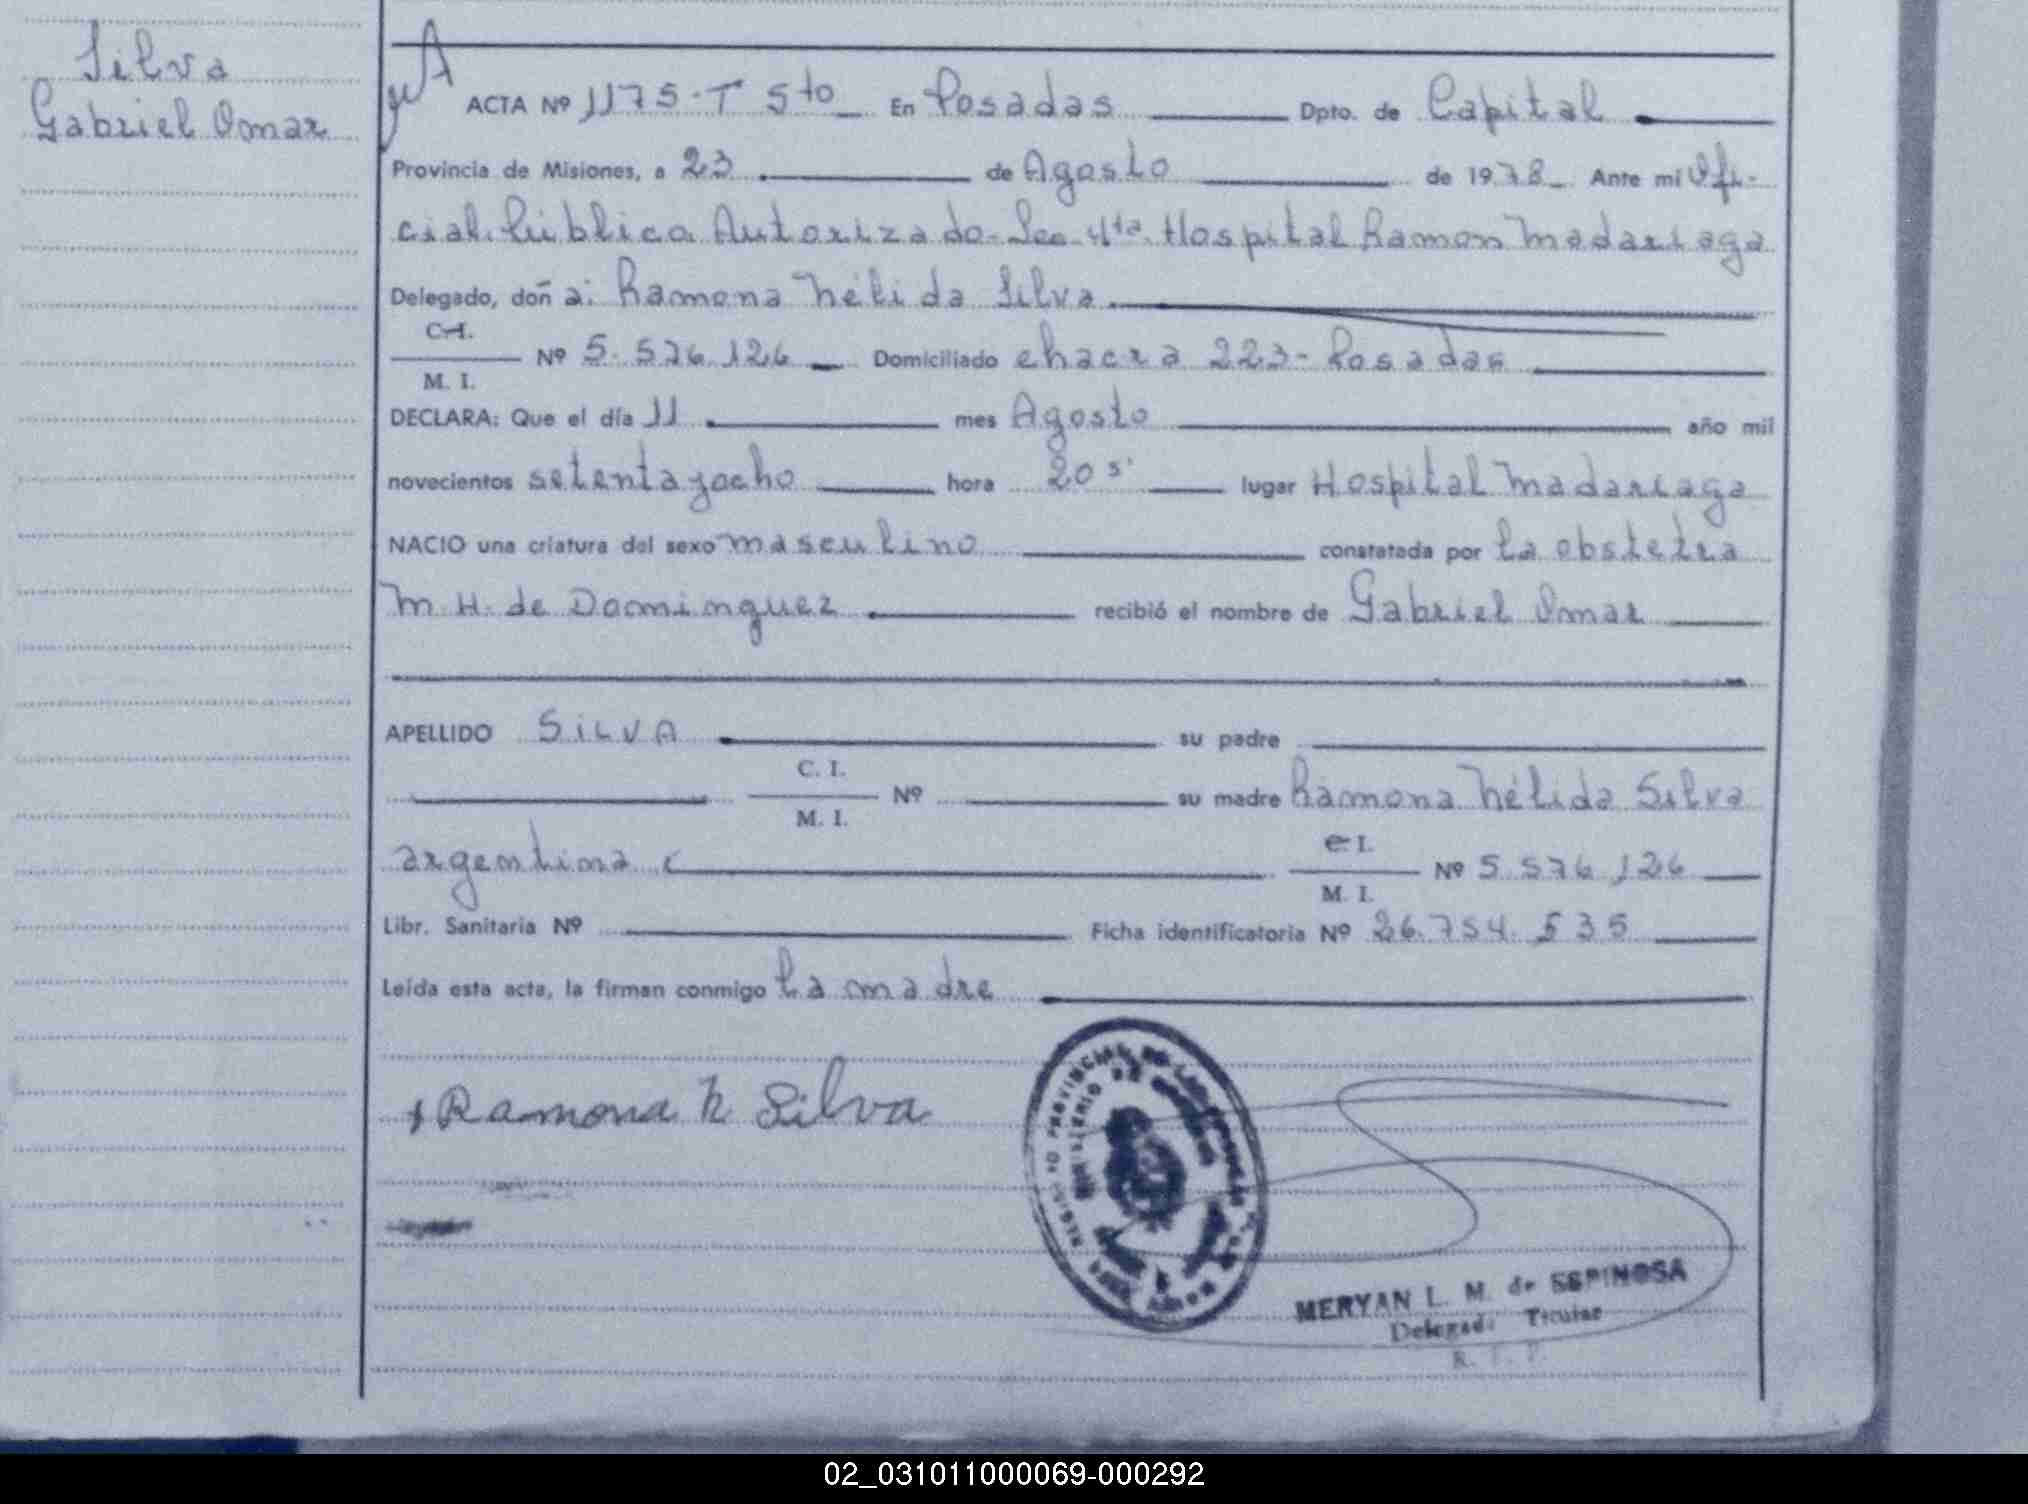 Silva
Gabriel Omar
ACTA Nº 1175-T 5to En Posadas Dpto. de Capital
Provincia de Misiones, a 23 de Agosto de 1978 Ante mi Ofi-
cial Público Autorizado - Sec 4ta. Hospital Ramon Madariaga
Delegado, doñ a: Ramona Nélida Silva
C. I.
Nº 5.576.126 Domiciliado chacra 223 - Posadas
M. I.
DECLARA: Que el día 11 mes Agosto año mil
novecientos setenta y ocho hora 20 s' lugar Hospital Madariaga
NACIO una criatura del sexo masculino constatada por la obstetra
M. H. de Dominguez recibió el nombre de Gabriel Omar
APELLIDO SILVA su padre
C. I.
Nº su madre Ramona Nélida Silva
M. I.
argentina
C. I.
Nº 5.576.126
M. I.
Libr. Sanitaria Nº Ficha identificatoria Nº 26.754.535
Leída esta acta, la firman conmigo la madre
Ramona N Silva
REGISTRO PROVINCIAL DE LAS PERSONAS
MINISTERIO DE GOBIERNO
MERYAN L. M. de ESPINOSA
Delegada Titular
R. P. P.
02_031011000069-000292